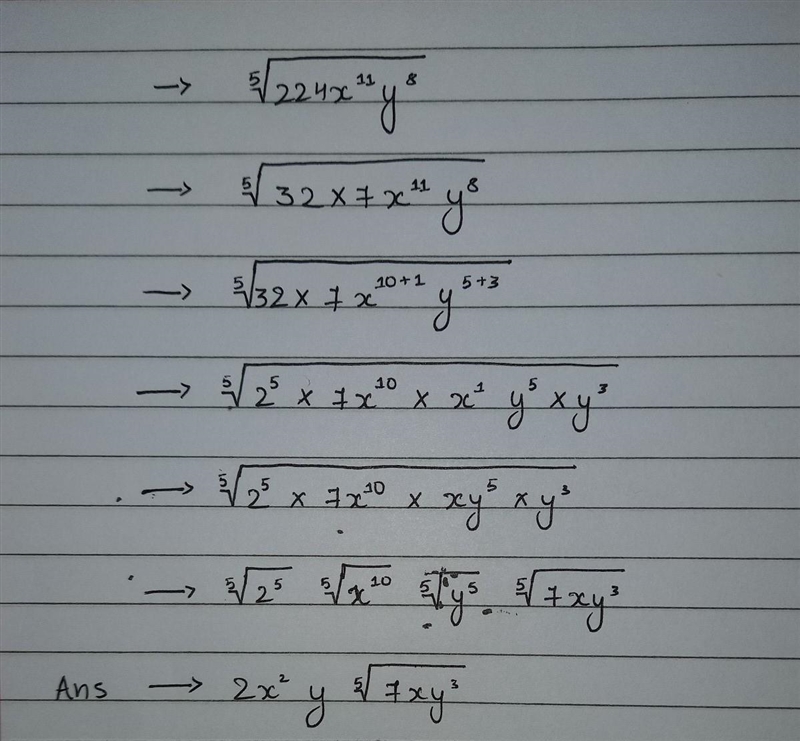 → ⁵√(224x¹¹y⁸)
→ ⁵√(32 × 7x¹¹ y⁸)
→ ⁵√(32 × 7x¹⁰⁺¹ y⁵⁺³)
→ ⁵√(2⁵ × 7x¹⁰ × x¹ y⁵ × y³)
→ ⁵√(2⁵ × 7x¹⁰ × xy⁵ × y³)
→ ⁵√(2⁵) ⁵√(x¹⁰) ⁵√(y⁵) ⁵√(7xy³)
Ans → 2x² y ⁵√(7xy³)